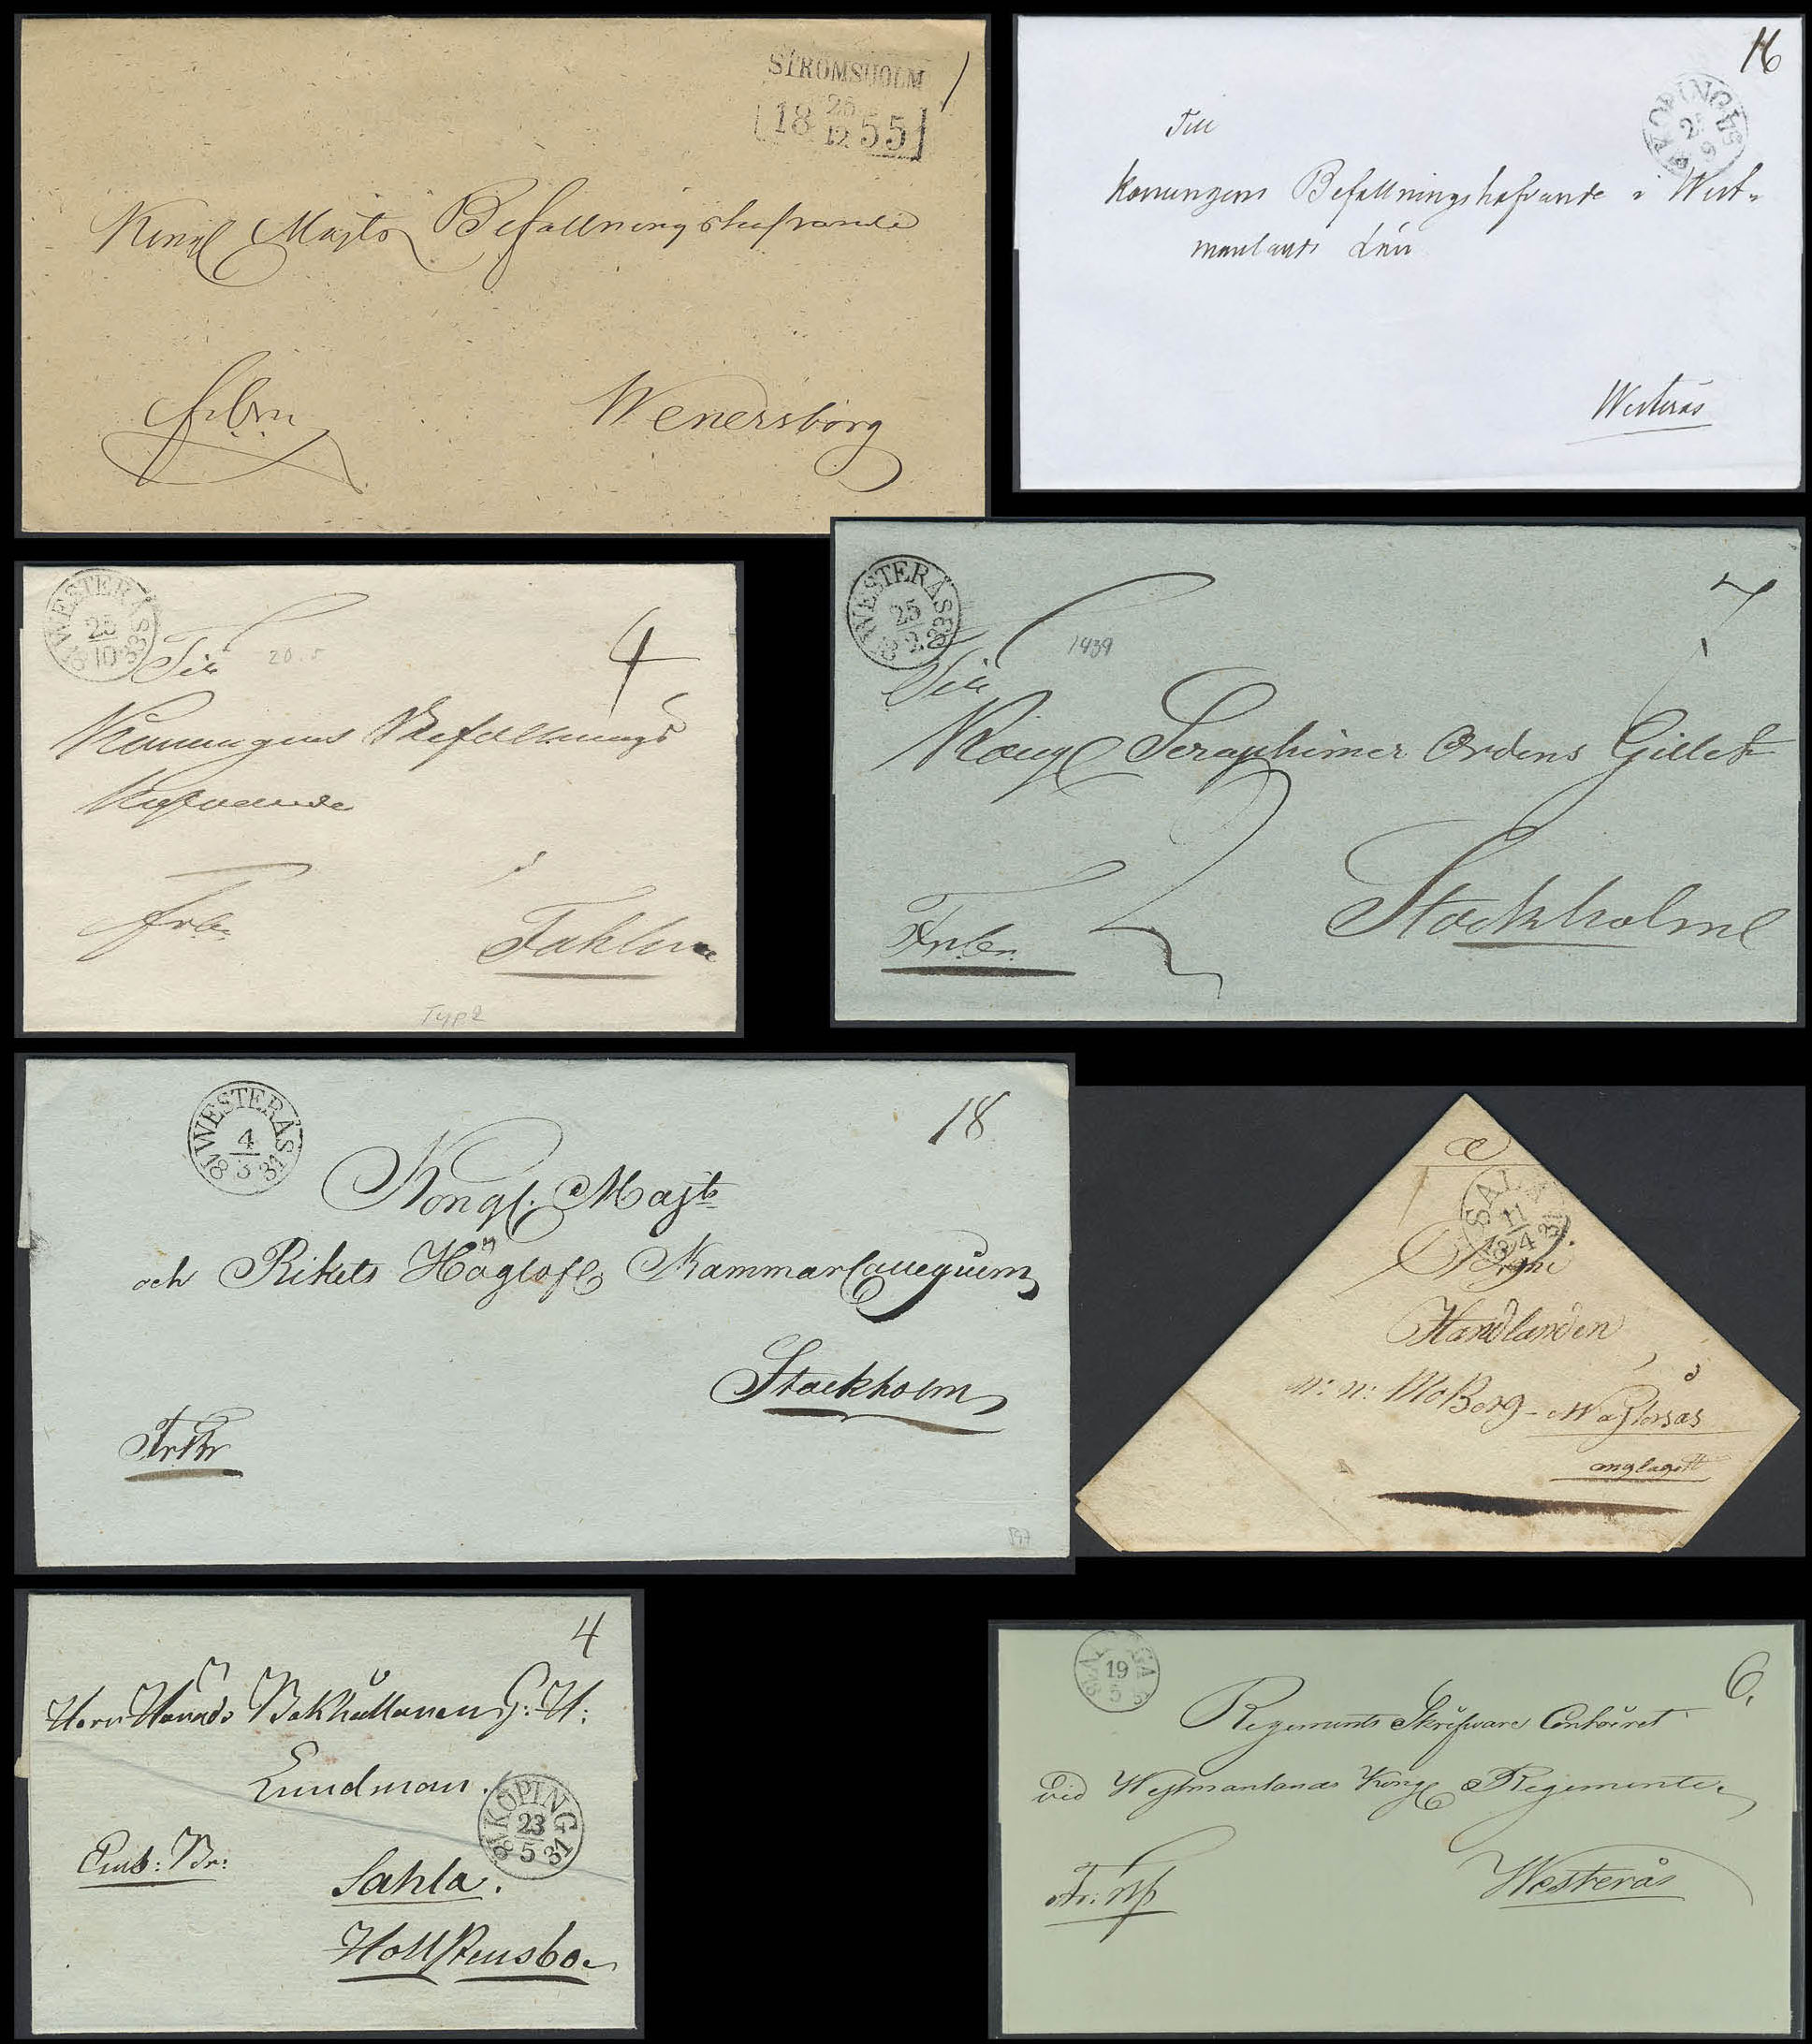 STRÖMSHOLM
18 25/12 55
Kongl Majts Befallningshafvande
Wenersborg
16
KÖPING
Till
Konungens Befallningshafvande i West-
manlands Län
Westerås
WESTERÅS
25
18 10 33
4
Till
20.5
Konungens Befallnings
Hafvande
i
Frbr.
Fahlun
Typ 2
WESTERÅS
25
7
1439
Till
Kongl Seraphimer Ordens Gillet
Stockholm
Frbr.
WESTERÅS
4
18 3 31
18
Kongl. Majts
och Rikets Höglofl Kammar Collegium
Stockholm
SALA
11
18 4 31
Handlanden
Moberg Wästerås
4
Lundman.
KÖPING
23
18 5 31
Emb: Br:
Sahla.
19
5
6.
Regements Skrifvare Contoiret
vid Westmanlands Kongl Regemente
Westerås